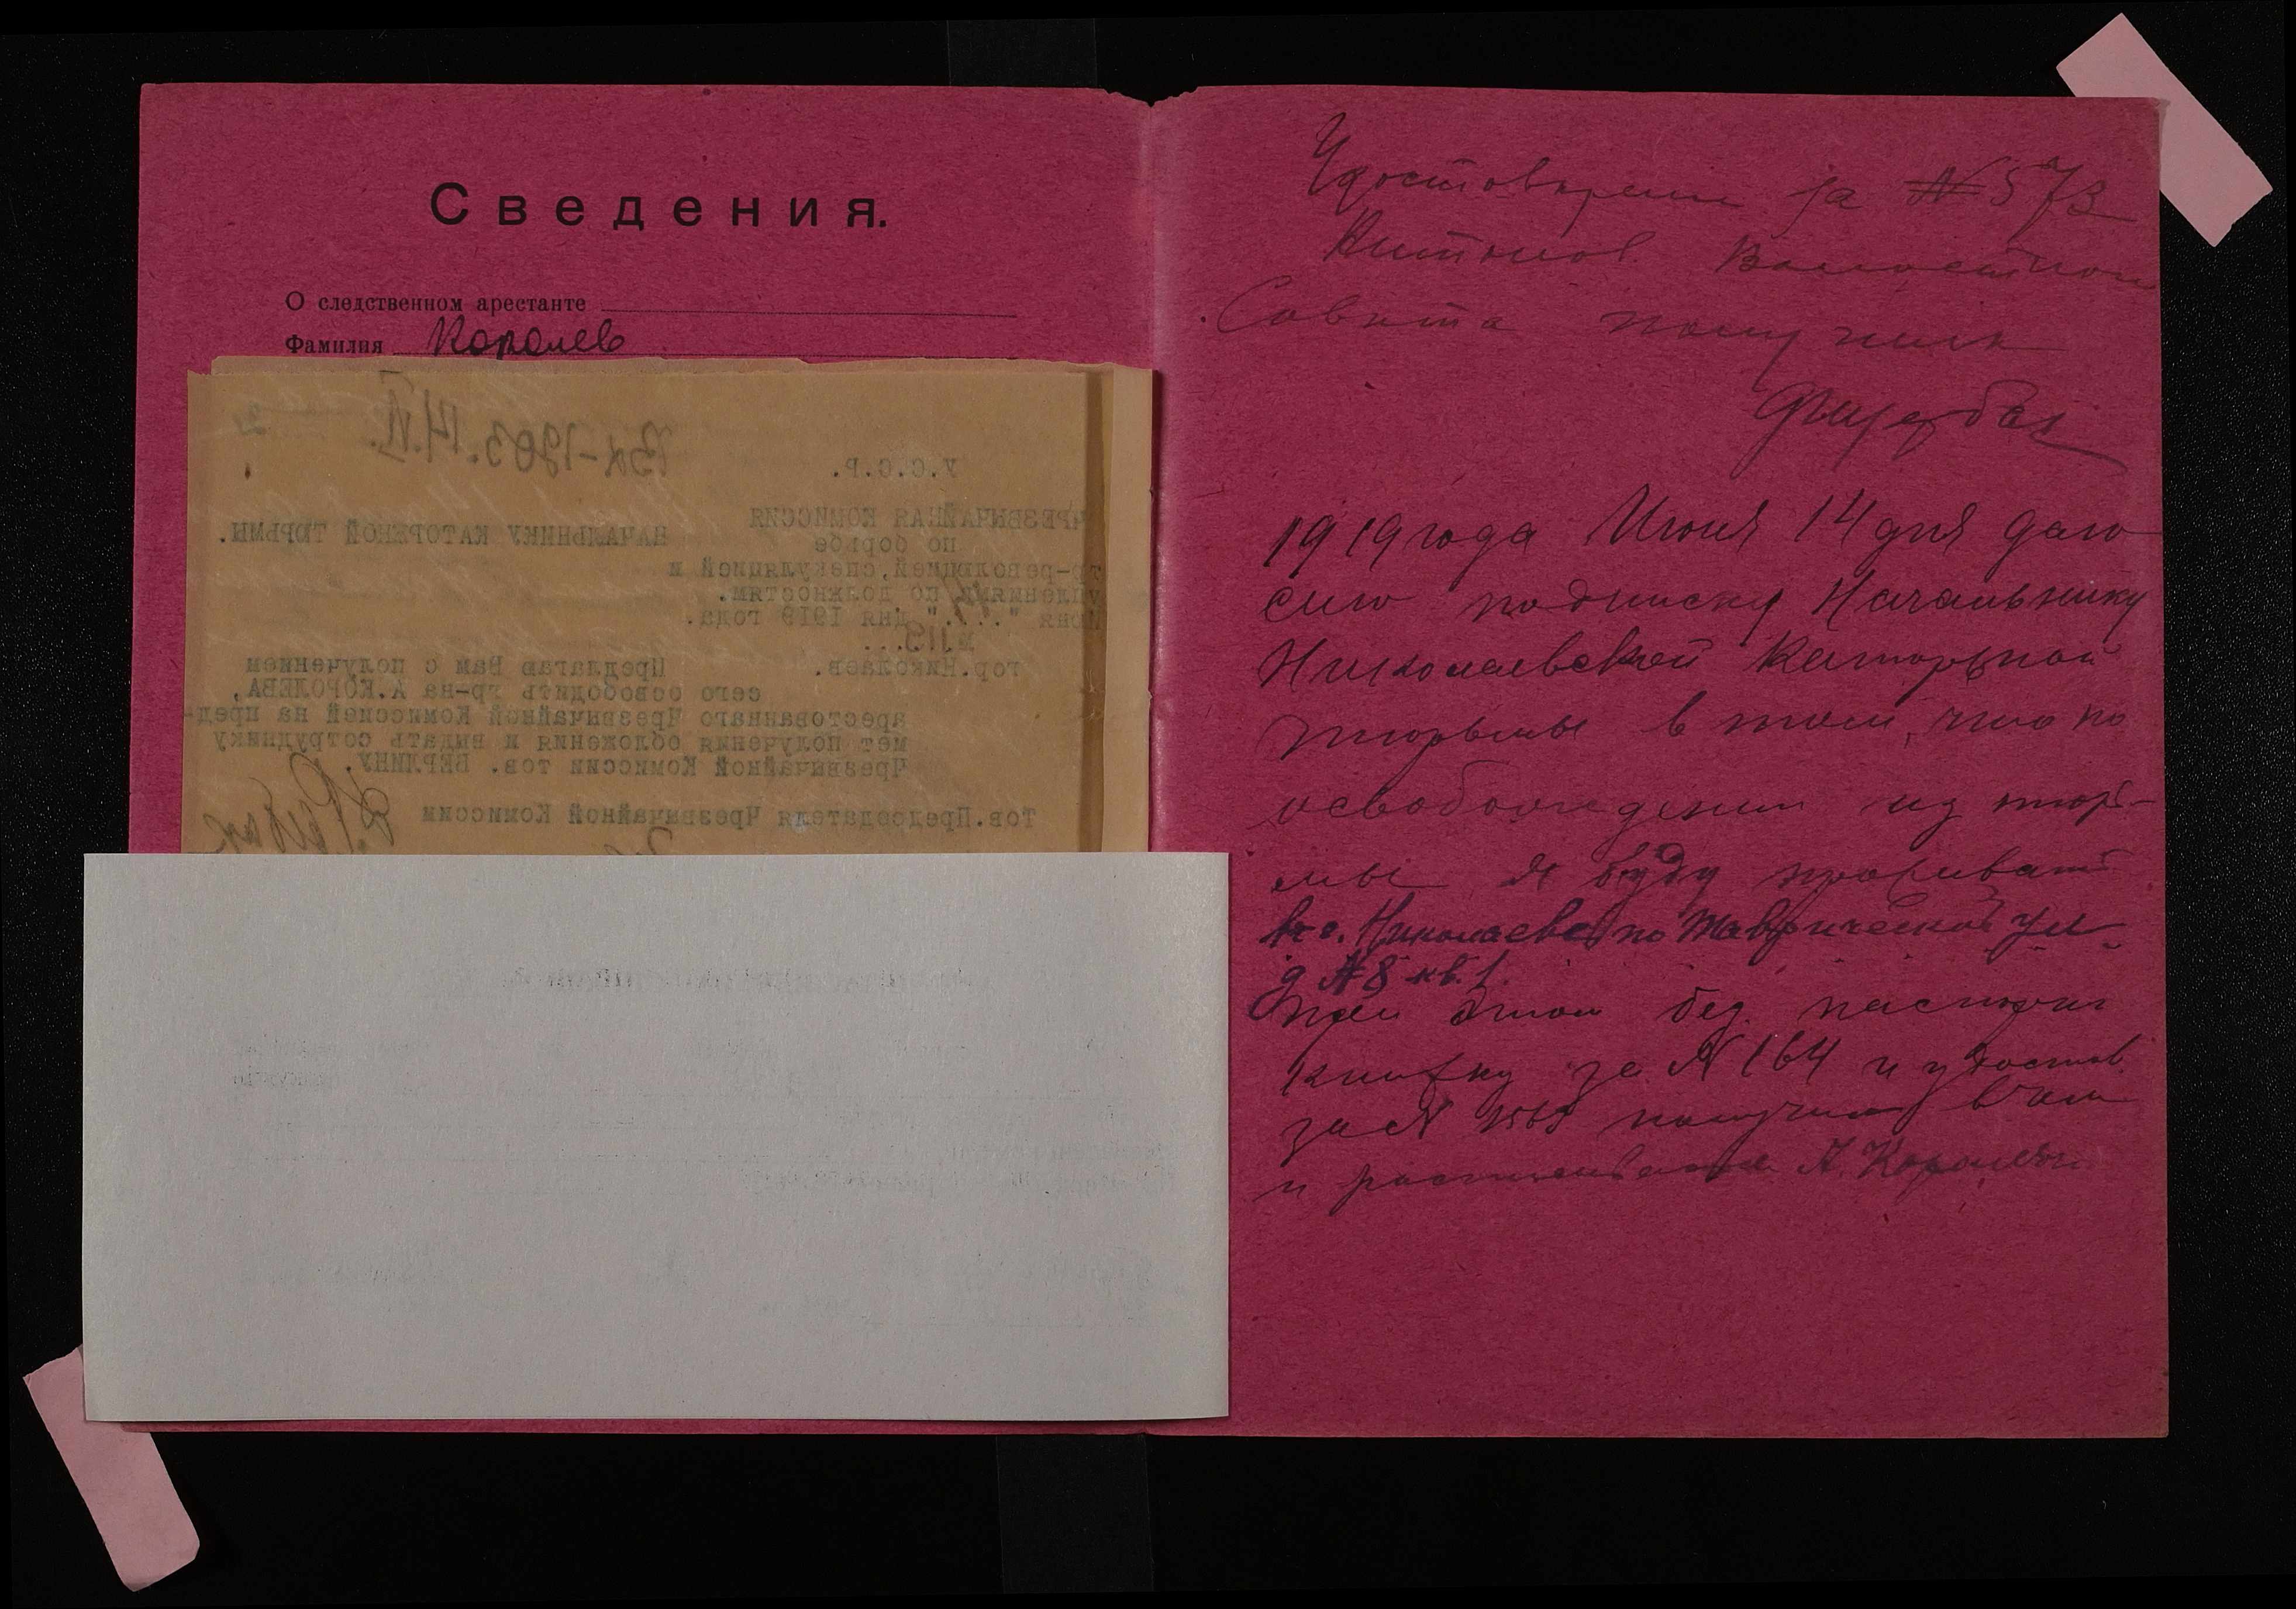 Сведения.
О следственном арестанте
Фамилия Королев
Вх-1203. 14.VI.
У.С.С.Р.
ЧРЕЗВЫЧАЙНАЯ КОМИССИЯ
по борьбе
НАЧАЛЬНИКУ КАТОРЖНОЙ ТЮРЬМЫ.
тр-революцией,спекуляцией и
уплениями по должностям.
июня "14" дня 1919 года.
№ 119...
гор.Николаев.
Предлагаю Вам с получением
сего освободить гр-на А.КОРОЛЕВА,
арестованнаго Чрезвычайной Комиссией на пред-
мет получения обложения и выдать сотруднику
Чрезвычайной Комиссии тов. БЕРЛИНУ.
Тов.Председателя Чрезвычайной Комиссии
Удостоверение за № 573
Волостного
Совета получил
1919 года Июня 14 дня даю
сию подписку Начальнику
Николаевской Каторжной
тюрьмы в том, что по
освобождении из тюрь-
мы я буду проживать
в г. Николаеве по Таврической ул.
д № 8 кв. 1.
при этом паспорт
книжку за № 164 и удостов.
за № получил в чем
и расписываюсь А. Королев